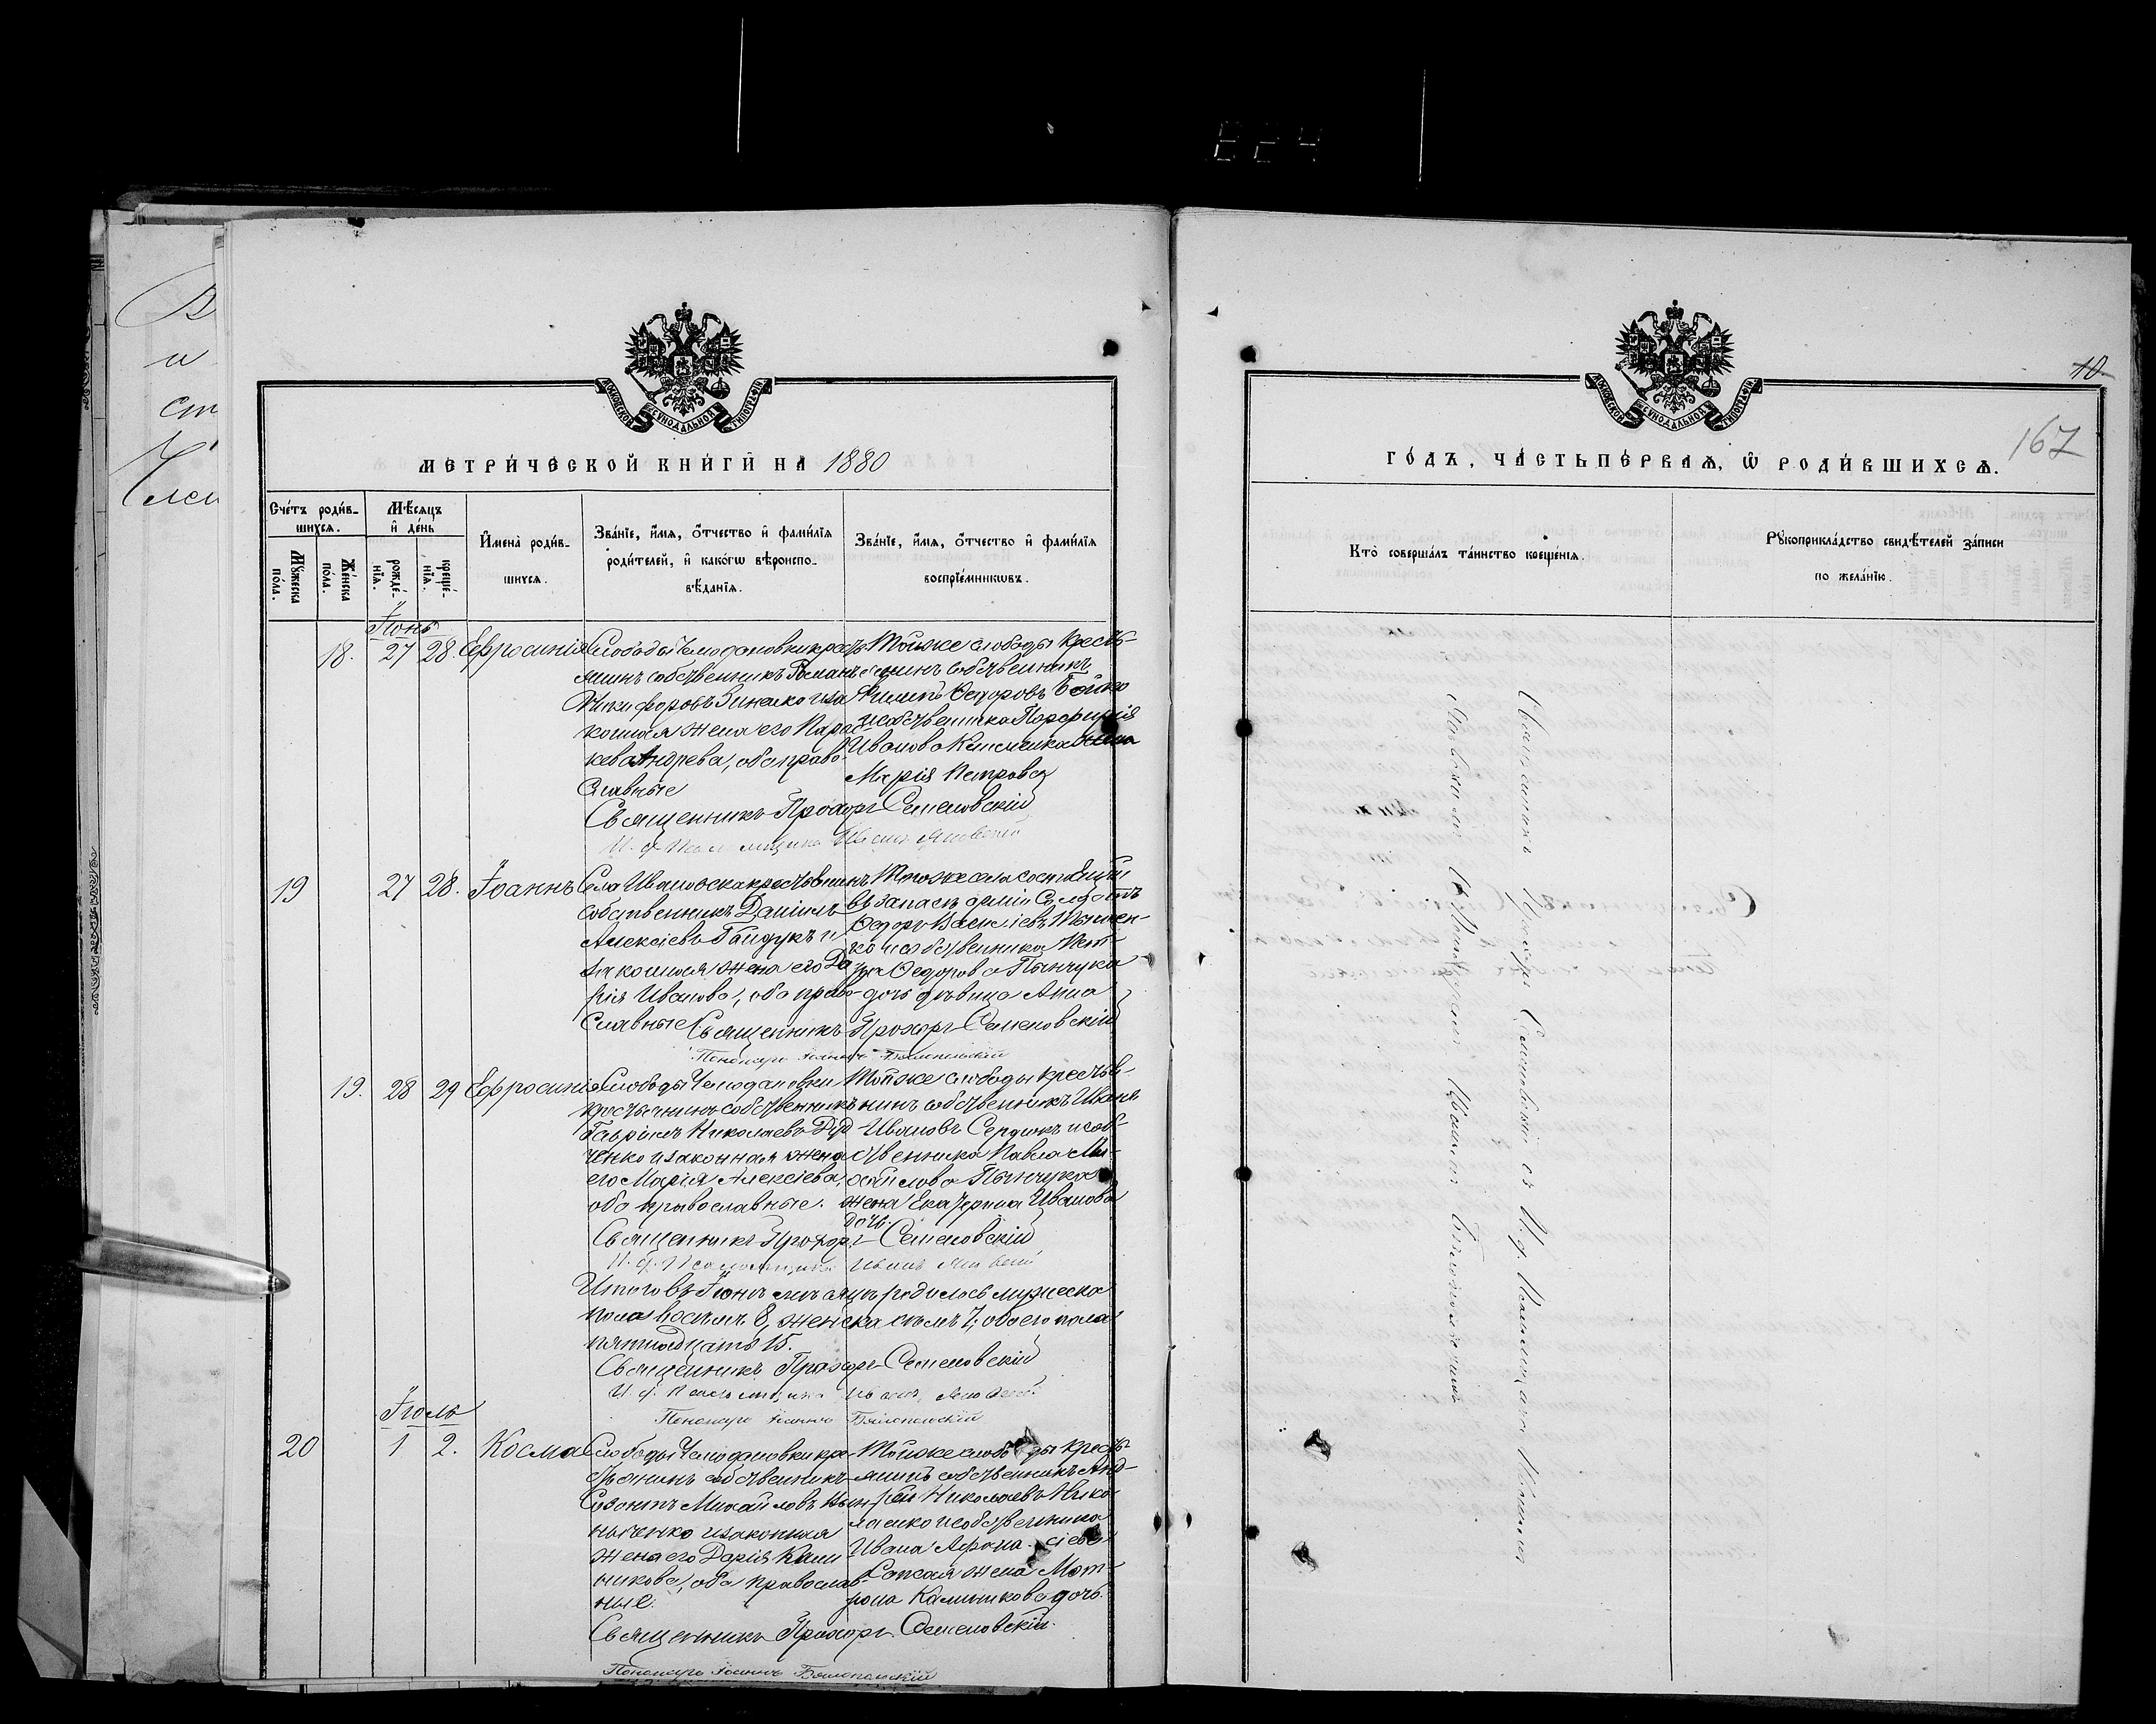 224
В
и
ст
Член
МОСКОВСКОЙ СУНОДАЛЬНОЙ ТИПОГРАФІИ
МЕТРИ́ЧЕСКОЙ КНИ́ГИ НА 1880
Сче́тъ роди́в-
шихся.
Мѣ́сяцъ
и҆ де́нь
Мꙋ́жеска по́ла.
Же́нска по́ла.
рожде́-
нїѧ.
креще́-
нїѧ.
И҆мена̀ роди́в-
шихся.
Зва́нїе, и҆́мѧ, ѻ҆́тчество и҆ фами́лїѧ
роди́телей, и҆ како́гѡ вѣроиспо-
вѣ́данїѧ.
Зва́нїе, и҆́мѧ, ѻ҆́тчество и҆ фами́лїѧ
воспрїе́мникѡвъ.
Іюнь
18. 27 28. Ефросинія
Слободы Чемодановки крес
янинъ собственникъ Романъ
Никифоровъ Зинько и за
конная жена его Парас
кева Андрева, оба право-
славные
Тойже слободы кресть-
янинъ собственникъ
Филипъ Ѳедоровъ Бойко
и собственника Порфирія
Иванова жена
Марія Петрова
Священникъ Прохоръ Семеновскій
И. д. Псаломщика Иванъ Яновскій
19 27 28. Іоаннъ
Села Ивановска крестьянинъ
собственникъ Даніилъ
Алексіевъ Гайдукъ и
законная жена его Да
рія Иванова, оба право-
славные
Тогоже села состоящій
въ запасѣ арміи Солдатъ
Ѳедоръ Василіевъ
ко и собственника Пет-
ра Ѳедорова Пынчука
дочь дѣвица Анна
Священникъ Прохоръ Семеновскій
Пономарь Іоаннъ Бялопольскій
19. 28 29 Ефросинія
Слободы Чемодановки
крестьянинъ собственникъ
Гавріилъ Николаевъ
ченко и законная жена
его Марія Алексіева,
оба православные.
Тойже слободы крестья-
нинъ собственникъ Иванъ
Ивановъ Сердюкъ и соб-
ственника Павла Ми-
хайлова Пынчука
жена Екатерина Иванова
дочь.
Священникъ Прохоръ Семеновскій
И. д. Псаломщика Иванъ Яновскій
Итого въ Іюнѣ мѣсяцѣ родилось мужеска
пола восемь 8, женска семь 7, обоего пола
пятнадцать 15.
Священникъ Прохоръ Семеновскій
И. д. Псаломщика Иванъ Яновскій
Пономарь Іоаннъ Бялопольскій
Іюль
20 1 2. Косма
Слободы Чемодановки кре-
стьянинъ собственникъ
Созонтъ Михайловъ
ниченко и законная
жена его Дарія Кали
никова, оба православ-
ные.
Тойже слободы кресть
янинъ собственникъ Анд-
рей Николаевъ Нико
лаенко и собственника
Ивана Афанасіева
Сапсая жена Мат-
рона Калиникова дочь.
Священникъ Прохоръ Семеновскій.
Пономарь Іоаннъ Бялопольскій
10
167
МОСКОВСКОЙ СУНОДАЛЬНОЙ ТИПОГРАФІИ
ГО́ДЪ, ЧА́СТЬ ПЕ́РВАѦ, Ѡ҆ РОДИ́ВШИХСѦ.
Кто̀ соверша́лъ та́инство креще́нїѧ.
Рꙋкоприкла́дство свидѣ́телей за́писи
по жела́нїю.
Священникъ Прохоръ Семеновскій съ И. д. Псаломщика Иваномъ
Яновскимъ и Пономаремъ Іоанномъ Бялопольскимъ